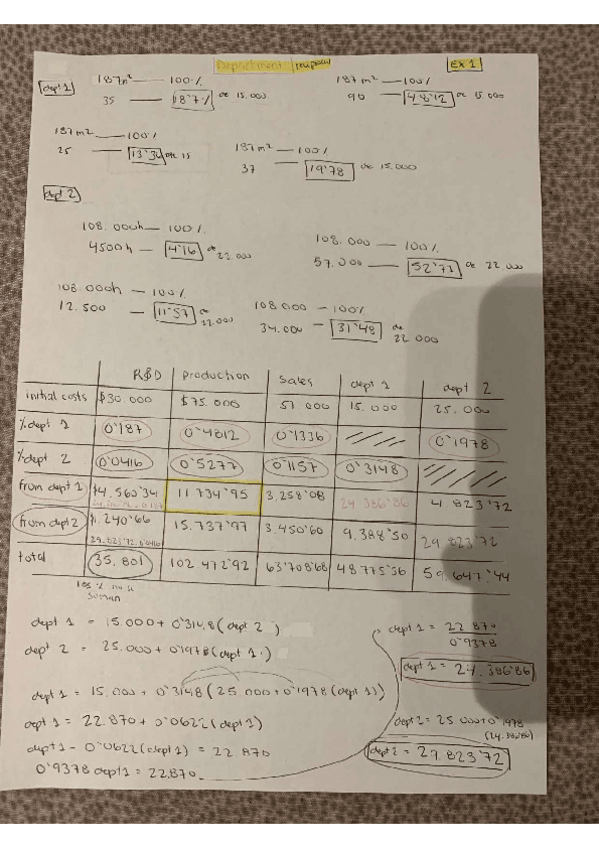 Department reciprocal EX 1
dept 1 187m² — 100% 187 m² — 100%
35 — 18'7% de 15.000 90 — 48'12 de 15.000
187 m2 — 100% 187 m² — 100%
25 — 13'36 de 15 37 — 19'78 de 15.000
dept 2
108.000h — 100% 108.000 — 100%
4500h — 4'16 de 22.000 57.000 — 52'77 de 22 000
108.000h — 100% 108.000 — 100%
12.500 — 11'57 de 22.000 34.000 — 31'48 de 22 000
R&D Production Sales dept 1 dept 2
initial costs $30.000 $75.000 51 000 15.000 25.000
% dept 1 0'187 0'4812 0'1336 0'1978
% dept 2 0'0416 0'5277 0'1157 0'3148
from dept 1 $4.560'34 11 734'95 3.258'08 24 386'86 4 823'72
from dept 2 $1.240'66 15.737'97 3.450'60 9.388'50 29 823'72
29.823'72·0'0416
total 35.801 102 472'92 63'708'68 48 775'36 59.647'44
suman
dept 1 = 15.000 + 0'3148 (dept 2)
dept 2 = 25.000 + 0'1978 (dept 1)
dept 1 = 15.000 + 0'3148 (25 000 + 0'1978 (dept 1))
dept 1 = 22.870 + 0'0622 (dept 1)
dept 1 - 0'0622 (dept 1) = 22.870
0'9378 dept 1 = 22.870
dept 1 = 22 870
0'9378
dept 1 = 24.386'86
dept 2 = 25 000 + 0'1978
(24.386'86)
dept 2 = 29.823'72